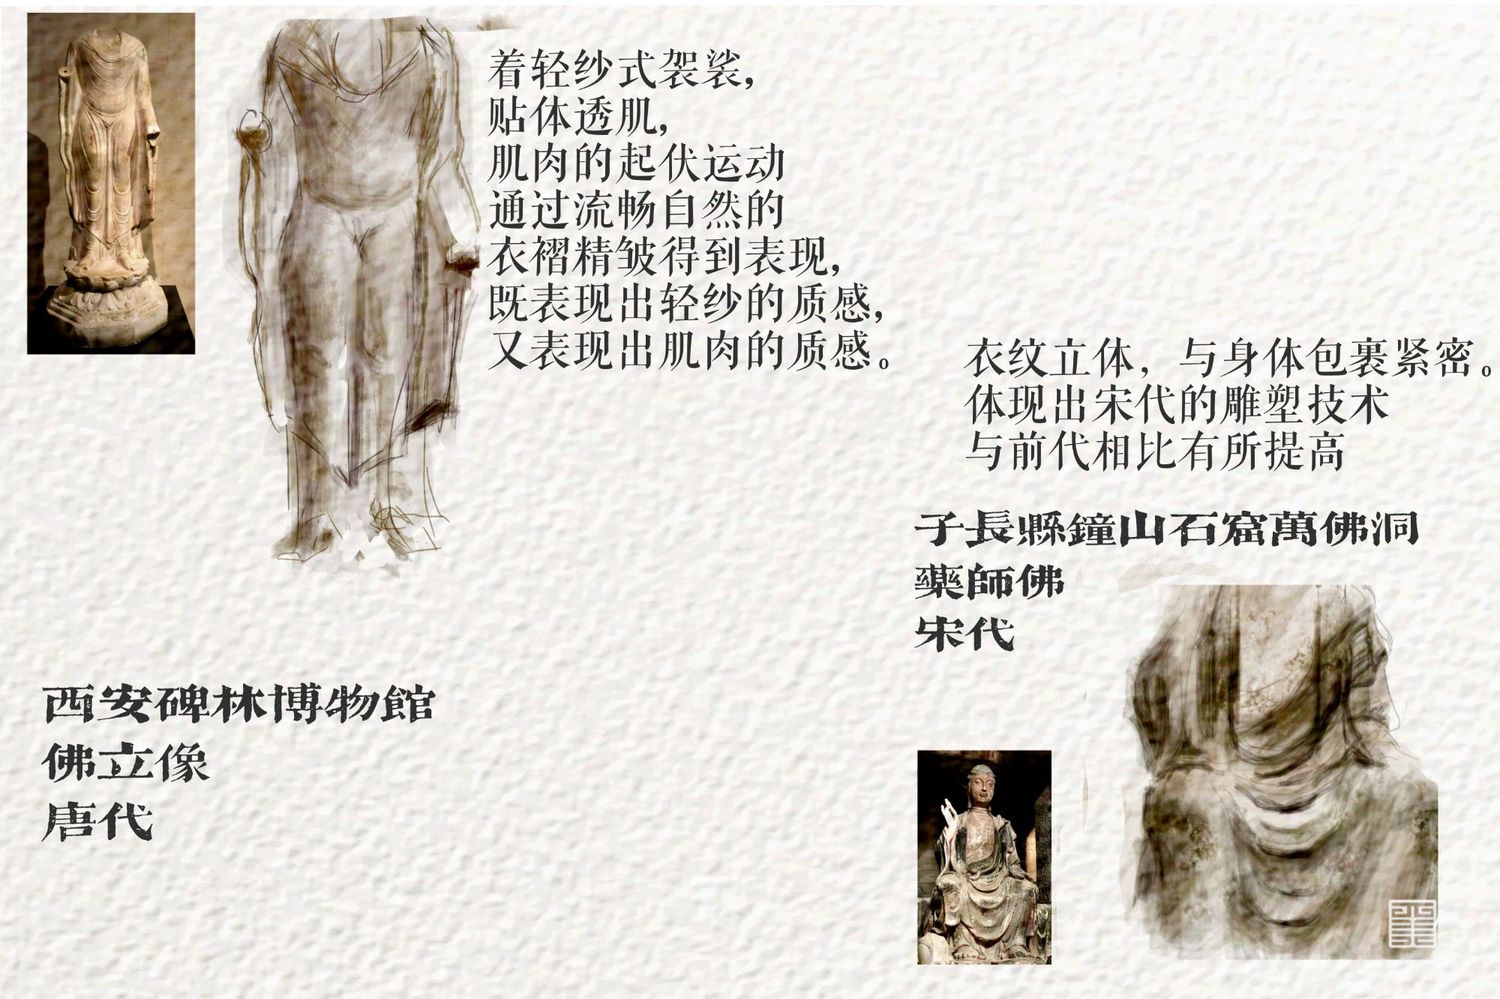 着轻纱式袈裟，
贴体透肌，
肌肉的起伏运动
通过流畅自然的
衣褶精皱得到表现，
既表现出轻纱的质感，
又表现出肌肉的质感。
衣纹立体，与身体包裹紧密。
体现出宋代的雕塑技术
与前代相比有所提高
子長縣鐘山石窟萬佛洞
藥師佛
宋代
西安碑林博物館
佛立像
唐代